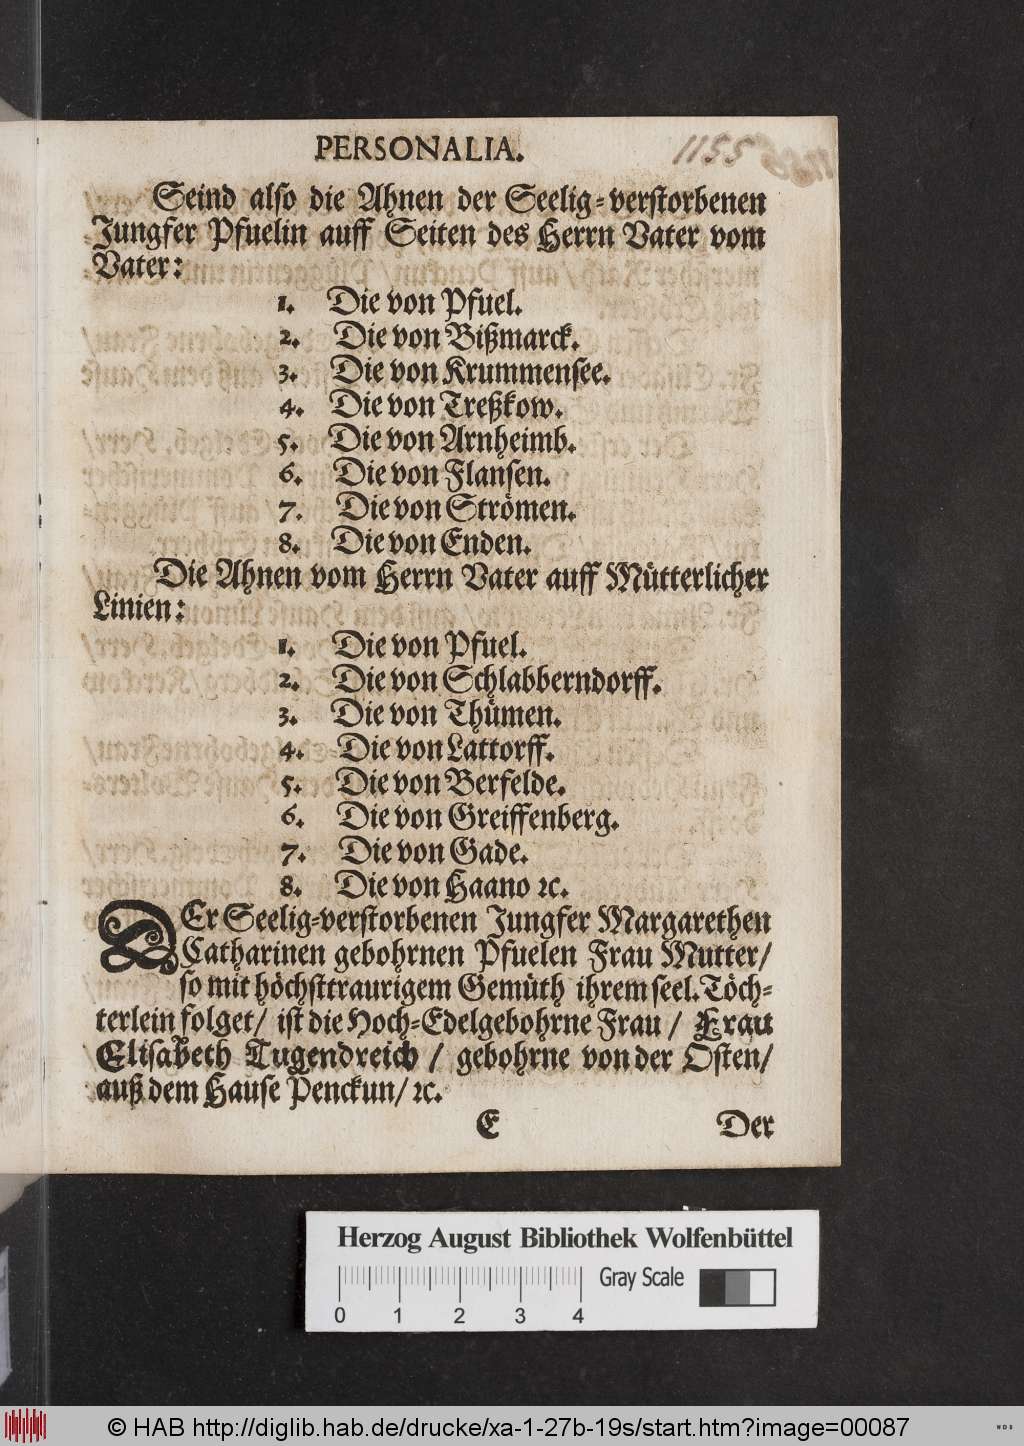 PERSONALIA.
1155
Seind also die Ahnen der Seelig-verstorbenen
Jungfer Pfuelin auff Seiten des Herrn Vater vom
Vater:
1. Die von Pfuel.
2. Die von Bißmarck.
3. Die von Krummensee.
4. Die von Treßkow.
5. Die von Arnheimb.
6. Die von Flansen.
7. Die von Strömen.
8. Die von Enden.
Die Ahnen vom Herrn Vater auff Mütterlicher
Linien:
1. Die von Pfuel.
2. Die von Schlabberndorff.
3. Die von Thümen.
4. Die von Lattorff.
5. Die von Berfelde.
6. Die von Greiffenberg.
7. Die von Gade.
8. Die von Haano ꝛc.
DEr Seelig-verstorbenen Jungfer Margarethen
Catharinen gebohrnen Pfuelen Frau Mutter/
so mit höchsttraurigem Gemüth ihrem seel. Töch-
terlein folget/ ist die Hoch-Edelgebohrne Frau / Frau
Elisabeth Tugendreich / gebohrne von der Osten/
auß dem Hause Penckun/ ꝛc.
E Der
Herzog August Bibliothek Wolfenbüttel
Gray Scale
0 1 2 3 4
© HAB http://diglib.hab.de/drucke/xa-1-27b-19s/start.htm?image=00087